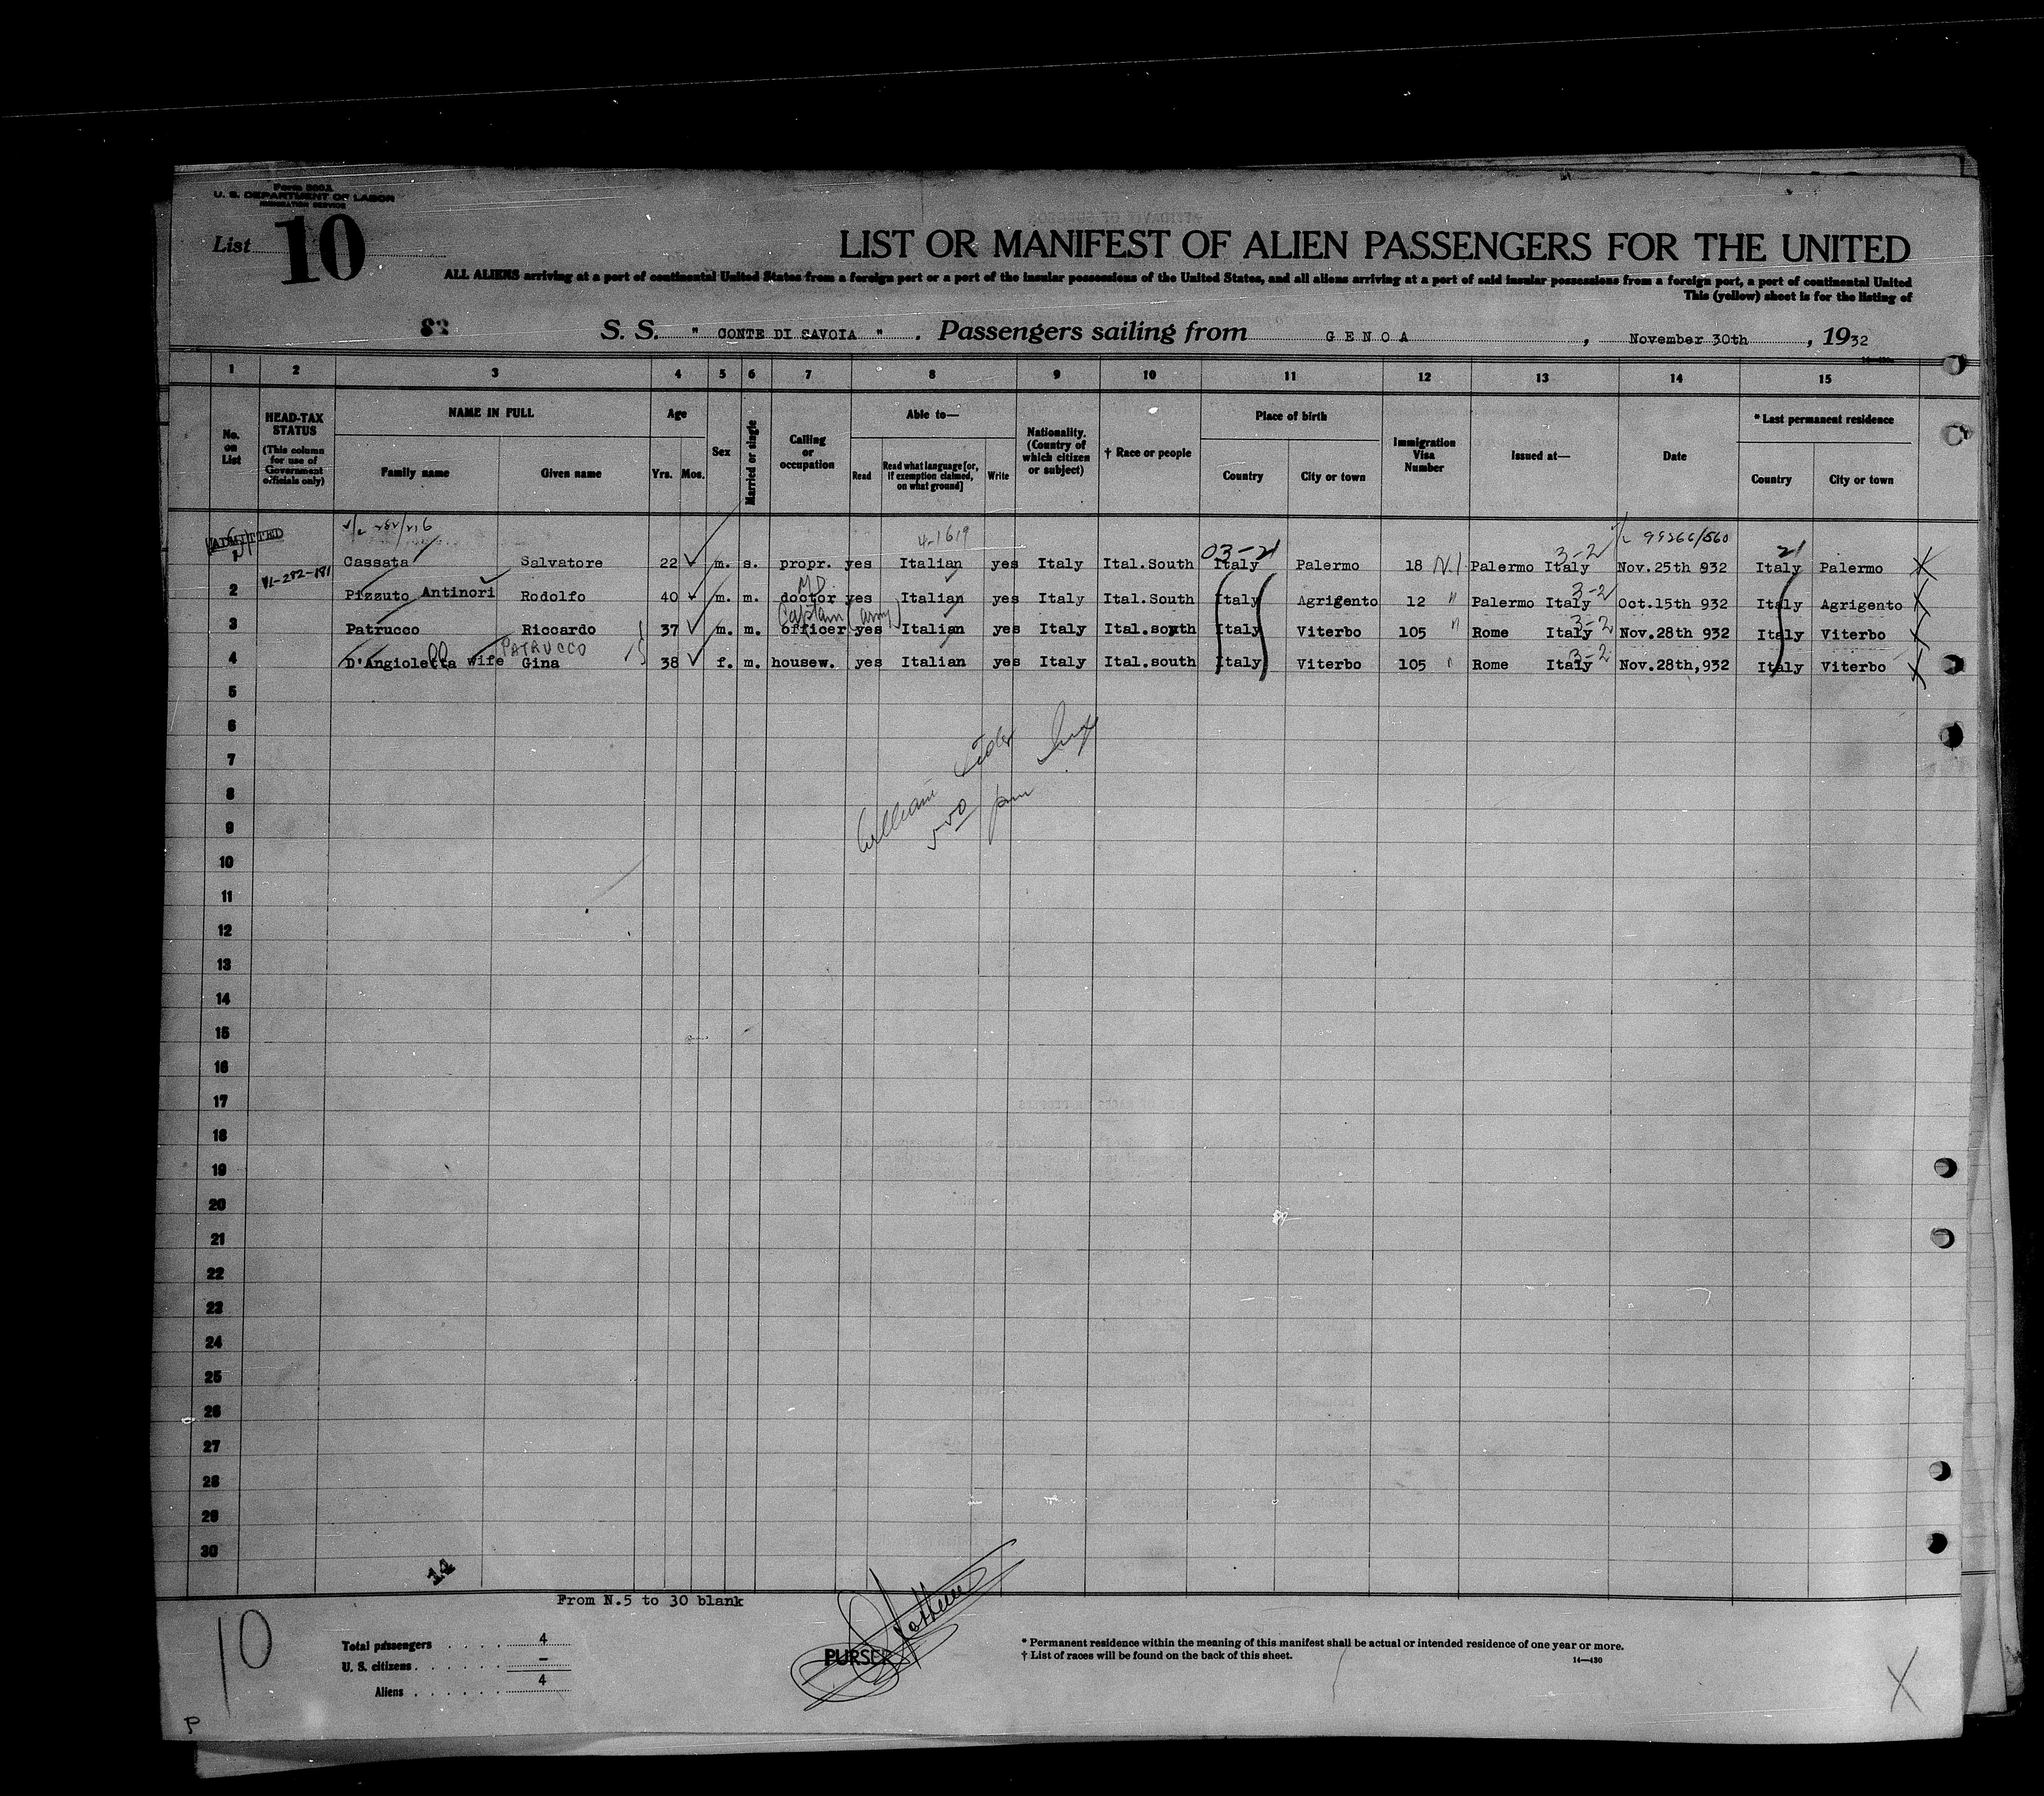 Form 500A
U. S. DEPARTMENT OF LABOR
IMMIGRATION SERVICE
List 10
LIST OR MANIFEST OF ALIEN PASSENGERS FOR THE UNITED
ALL ALIENS arriving at a port of continental United States from a foreign port or a port of the insular possessions of the United States, and all aliens arriving at a port of said insular possessions from a foreign port, a port of continental United
This (yellow) sheet is for the listing of
82 S. S. " CONTE DI SAVOIA ". Passengers sailing from GENOA, November 30th, 1932
1 2 3 4 5 6 7 8 9 10 11 12 13 14 15
No. on List
HEAD-TAX STATUS (This column for use of Government officials only)
NAME IN FULL
Family name Given name
Age
Yrs. Mos.
Sex
Married or single
Calling or occupation
Able to—
Read Read what language [or, if exemption claimed, on what ground] Write
Nationality. (Country of which citizen or subject)
† Race or people
Place of birth
Country City or town
Immigration Visa Number
Issued at—
Date
* Last permanent residence
Country City or town
4-1619 99266/560
ADMITTED
03-21 3-2 21
1 Cassata Salvatore 22 m. s. propr. yes Italian yes Italy Ital.South Italy Palermo 18 Palermo Italy Nov.25th 932 Italy Palermo
M.D. 3-2
2 Pizzuto Antinori Rodolfo 40 m. m. doctor yes Italian yes Italy Ital.South Italy Agrigento 12 " Palermo Italy Oct.15th 932 Italy Agrigento
Captain (army) 3-2
3 Patrucco Riccardo 37 m. m. officer yes Italian yes Italy Ital.south Italy Viterbo 105 " Rome Italy Nov.28th 932 Italy Viterbo
PATRUCCO 3-2
4 D'Angiolella wife Gina 38 f. m. housew. yes Italian yes Italy Ital.south Italy Viterbo 105 Rome Italy Nov.28th,932 Italy Viterbo
5
6
7
8
William
9
10
11
12
13
14
15
16
17
18
19
20
21
22
23
24
25
26
27
28
29
30
14
From N.5 to 30 blank
10
Total passengers . . . . 4
U. S. citizens . . . . . . –
Aliens . . . . . . 4
PURSER
* Permanent residence within the meaning of this manifest shall be actual or intended residence of one year or more.
† List of races will be found on the back of this sheet.
14—430
X
P